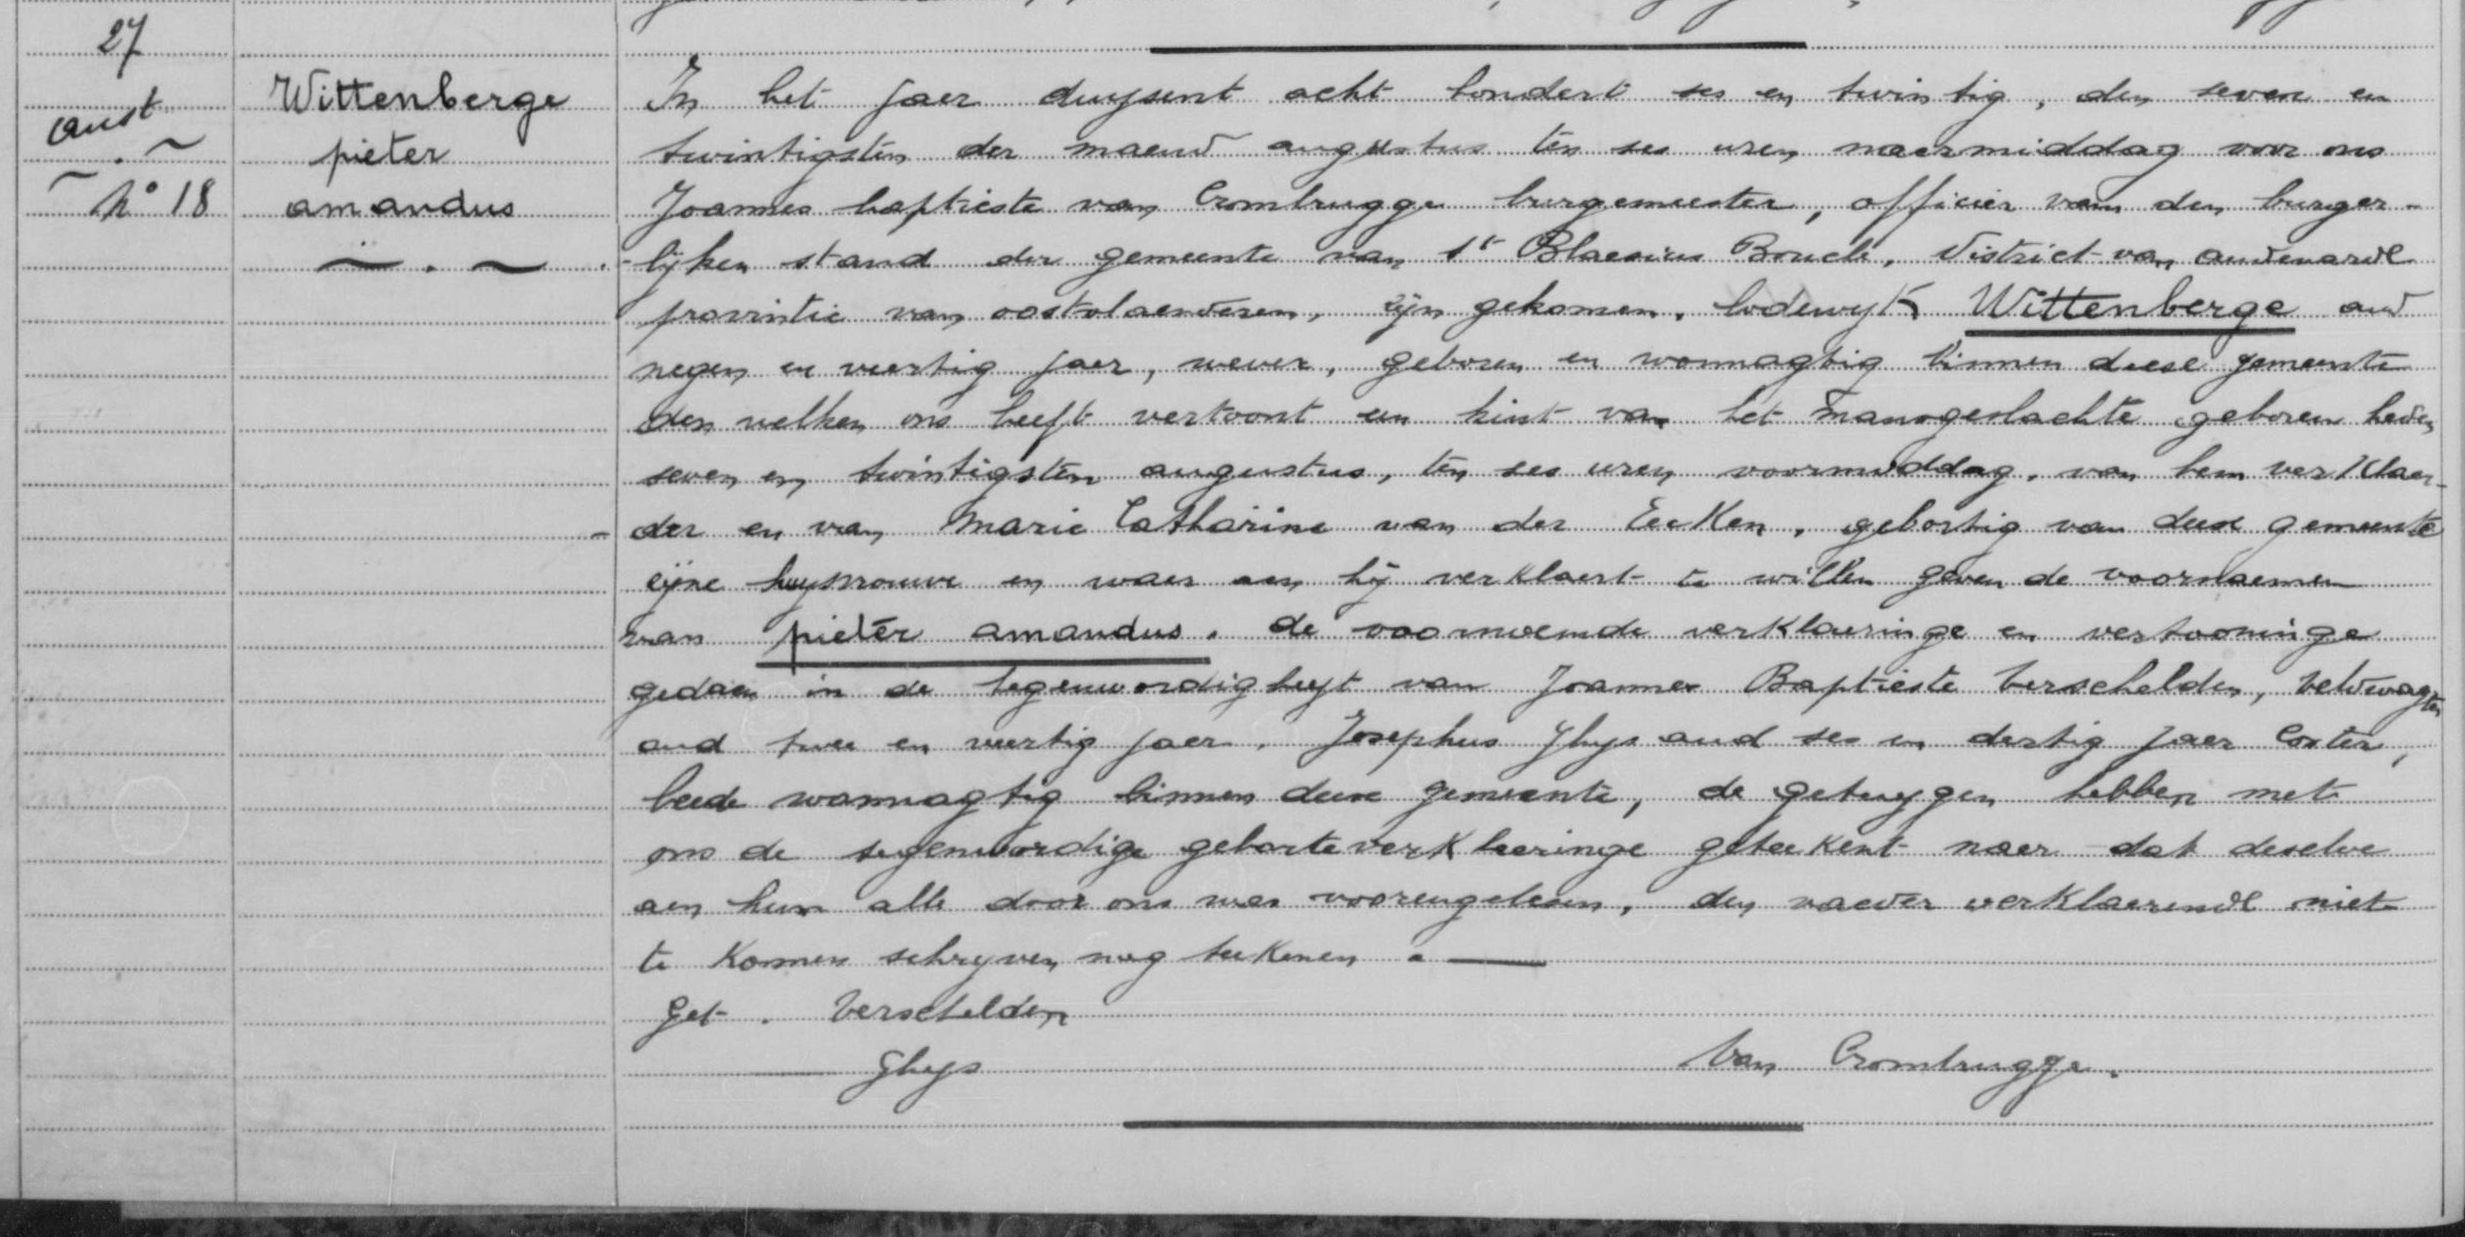 27
aust
n° 18
Wittenberge
pieter
amandus
In het jaer duysent acht hondert ses en twintig, den seven en
twintigsten der maend augustus ten ses uren naermiddag voor ons
Joannes baptiste van Crombrugge burgemeester, officier van den burger-
-lijken stand der gemeente van st Blaesius Boucle, district van audenarde
provintie van oostvlaenderen, zijn gekomen, lodewyk Wittenberge oud
negen en veertig jaer, wever, geboren en woonagtig binnen deese gemeente
den welken ons heeft vertoont een kint van het mansgeslachte geboren heden
seven en twintigsten augustus, ten ses uren voormiddag, van hem verklaer-
-der en van Marie Catharine van der Eecken, gebortig van deese gemeente
zijne huysvrouwe en waer aen hij verklaert te willen geven de voornaemen
van pieter amandus. de voornoemde verklaeringe en vertooninge
gedaen in de tegenwordigheyt van Joannes Baptieste Verschelden, veldwagter
oud twee en veertig jaer, Josephus Ghys oud ses en dertig jaer Coster,
beede woonnagtig binnen deese gemeente, de getuygen hebben met
ons de tegenwordige geborteverklaeringe geteekent naer dat deselve
aen hun alle door ons was voorengelesen, den vaeder verklaerende niet
te konnen schryven nog teekenen.
Get. Verschelden
Ghys Van Crombrugge.